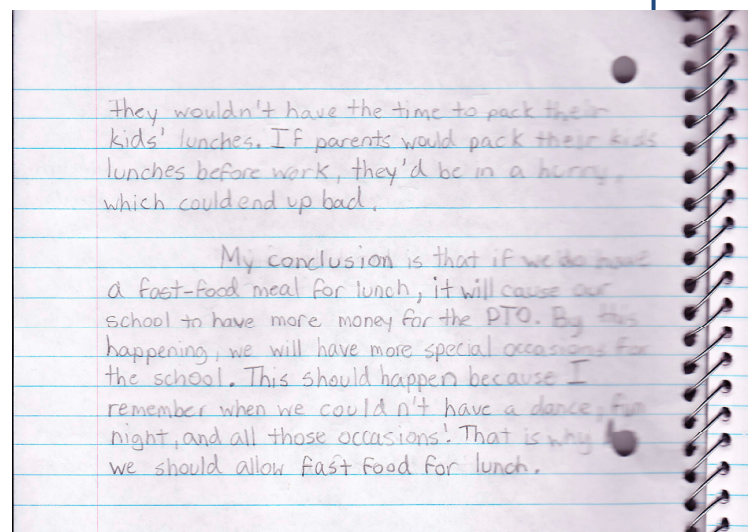 they wouldn't have the time to pack their
kids' lunches. If parents would pack their kids
lunches before work, they'd be in a hurry,
which could end up bad.
My conclusion is that if we do have
a fast-food meal for lunch, it will cause our
school to have more money for the PTO. By this
happening, we will have more special occasions for
the school. This should happen because I
remember when we couldn't have a dance, fun
night, and all those occasions! That is why
we should allow fast food for lunch.